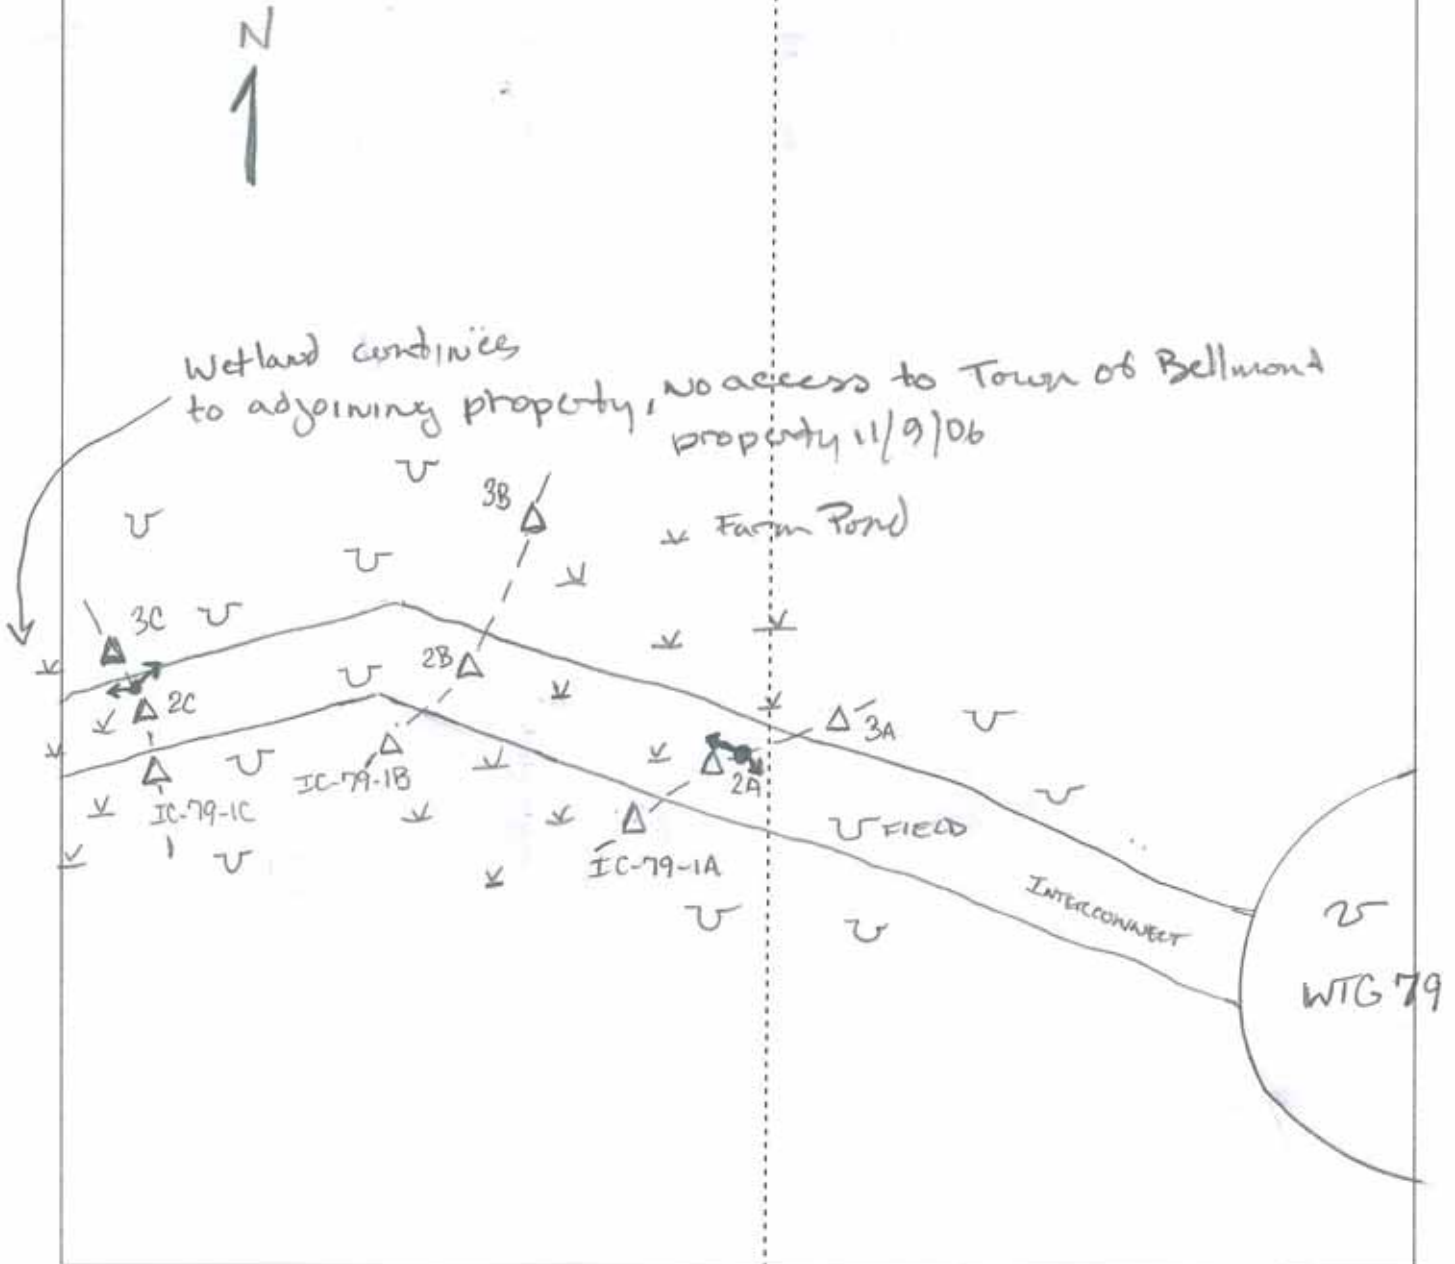 N
Wetland continues
to adjoining property, No access to Town of Bellmont
property 11/9/06
3B
Farm Pond
3C
2B
2C
3A
IC-79-1B
2A
IC-79-1C
FIELD
IC-79-1A
INTERCONNECT
WTG 79